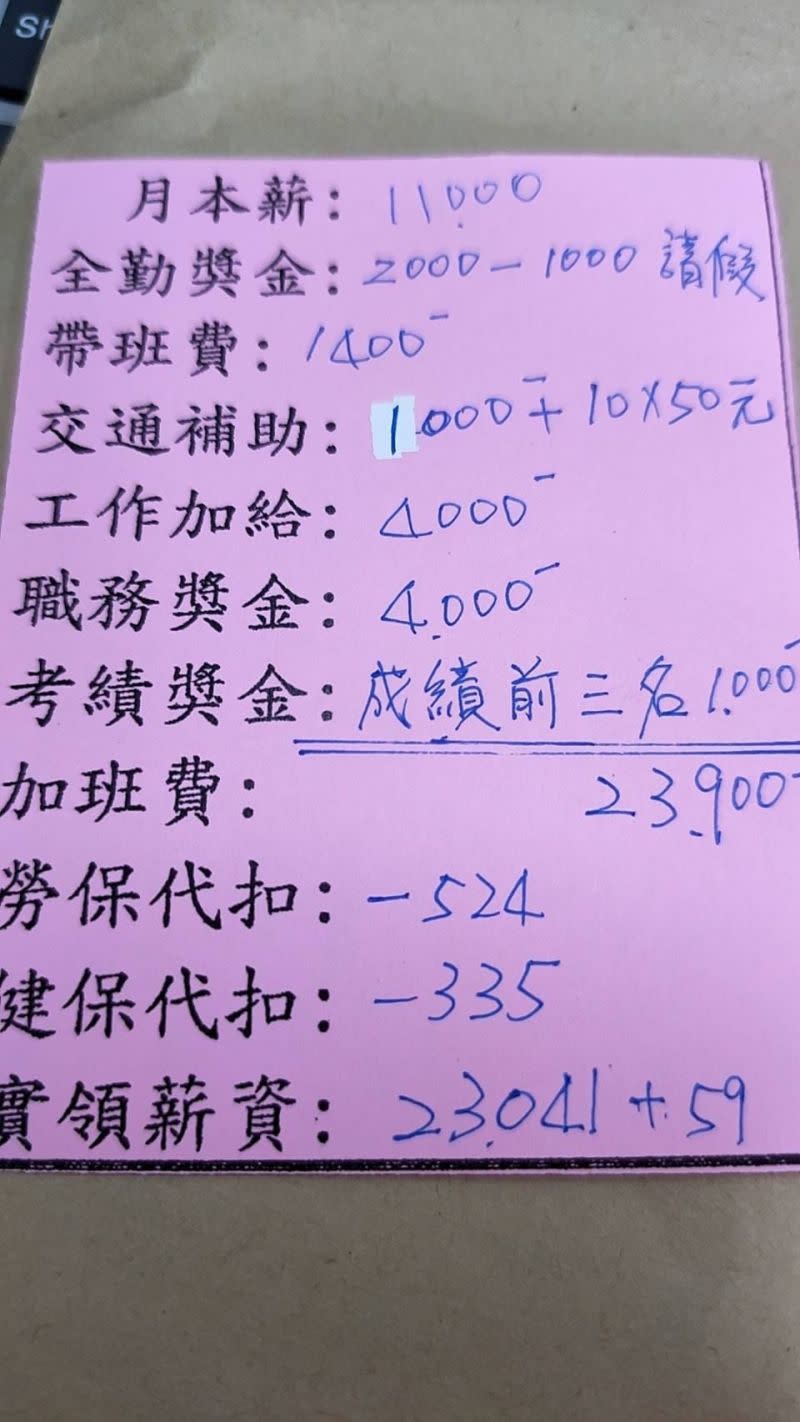 SH
月本薪: 11.000
全勤獎金: 2000-1000 請假
帶班費: 1400-
交通補助: 1.000-+10×50元
工作加給: 4000-
職務獎金: 4.000-
考績獎金: 成績前三名1.000-
加班費: 23.900-
勞保代扣: -524
健保代扣: -335
實領薪資: 23.041+59